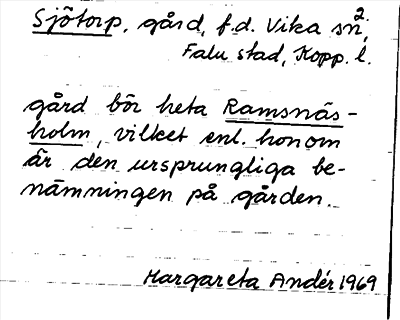 Sjötorp, gård, f.d. Vika sn,2
Falu stad, Kopp. l.
gård bör heta Ramsnäs-
holm, vilket enl. honom
är den ursprungliga be-
nämningen på gården.
Margareta Andér 1969